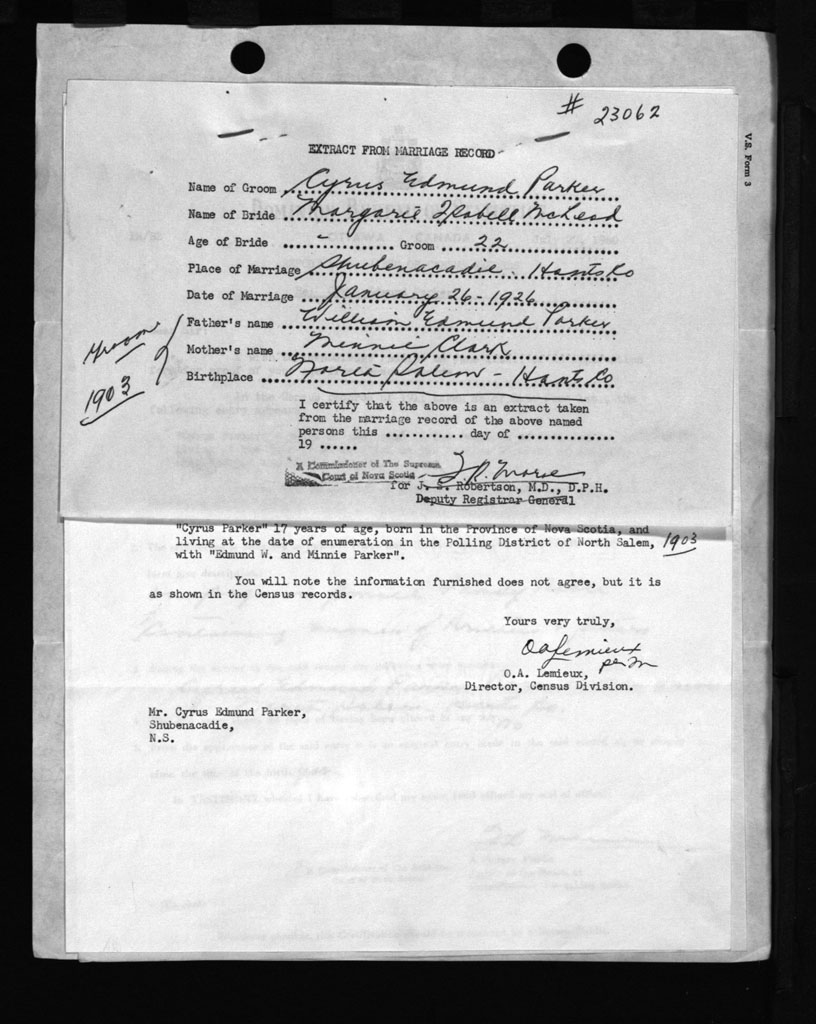 # 23062
V.S. Form 3
EXTRACT FROM MARRIAGE RECORD
Name of Groom Cyrus Edmund Parker
Name of Bride Margarie Isabell McLeod
Age of Bride - Groom 22
Place of Marriage Shubenacadie - Hants Co
Date of Marriage January 26 - 1926
Father's name William Edmund Parker
Mother's name Minnie Clark
Birthplace North Salem - Hants Co
Groom
1903
I certify that the above is an extract taken
from the marriage record of the above named
persons this ............ day of ..............
19 ......
A Commissioner of The Supreme
Court of Nova Scotia
for J. S. Robertson, M.D., D.P.H.
Deputy Registrar General
"Cyrus Parker" 17 years of age, born in the Province of Nova Scotia, and
living at the date of enumeration in the Polling District of North Salem, 1903
with "Edmund W. and Minnie Parker".
You will note the information furnished does not agree, but it is
as shown in the Census records.
Yours very truly,
OALemieux
per M
O.A. Lemieux,
Director, Census Division.
Mr. Cyrus Edmund Parker,
Shubenacadie,
N.S.